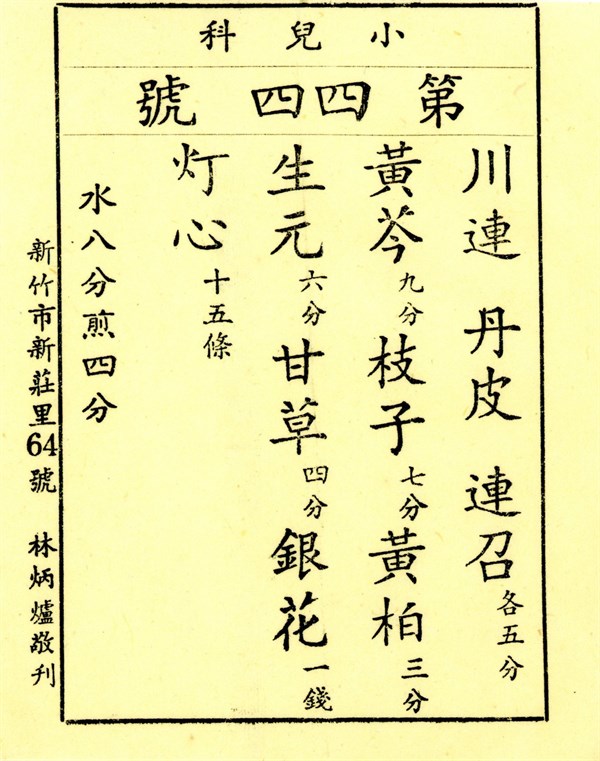 小兒科
第四四號
川連 丹皮 連召各五分
黃芩九分枝子七分黃柏三分
生元六分甘草四分銀花一錢
灯心十五條
水八分煎四分
新竹市新莊里64號 林炳爐敬刊